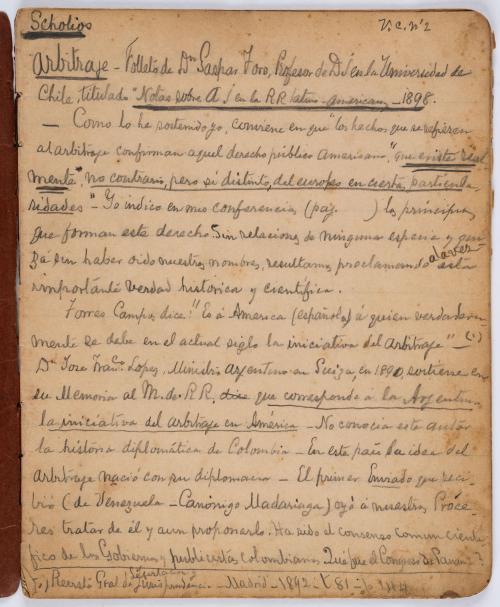 Scholios
V. C. nº 2
Arbitraje – Folleto de Dn Gaspar Toro, Profesor de D. I en la Universidad de
Chile, titulado "Notas sobre A I en la RR latino-americanas – 1898.
— Como lo he sostenido yo, conviene en que "los hechos que se refieren
al arbitraje confirman aquel derecho público Americano, "que existe real
mente", no contrario, pero sí distinto, del europeo en ciertas particula-
ridades" – Yo indico en mis conferencias (pag. ) los principios
que forman este derecho. Sin relaciones de ninguna especie y qui
zá sin haber oido nuestros nombres, resultamos proclamando a la vez esta
importante verdad historica y científica.
Torres Campos dice: "Es á America (española) á quien verdadera-
mente se debe en el actual siglo la iniciativa del arbitraje" – (1)
Dn Jose Franco. Lopez, Ministro argentino en Suiza, en 1890, sostiene en
su Memoria al M. de RR, que corresponde a la Argentina
la iniciativa del arbitraje en América – No conocía este autor
la historia diplomática de Colombia – En este país la idea del
arbitraje nació con su diplomacia – El primer Enviado que reci
bió (de Venezuela – Canónigo Madariaga) oyó á nuestros Próce
res tratar de él y aun proponerlo. Ha sido el consenso comun cientí
fico de los Gobiernos y publicistas colombianos. Qué fue el Congreso de Panamá?
(1) Revista Gral de Legislación y Jurisprudencia. – Madrid – 1892 – t. 81 – p. 144